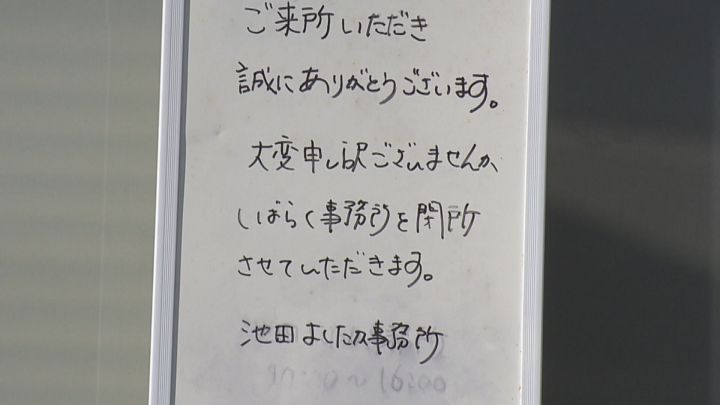 ご来所いただき
誠にありがとうございます。
大変申し訳ございませんが、
しばらく事務所を閉所
させていただきます。
池田よしたか事務所
10:00～16:00